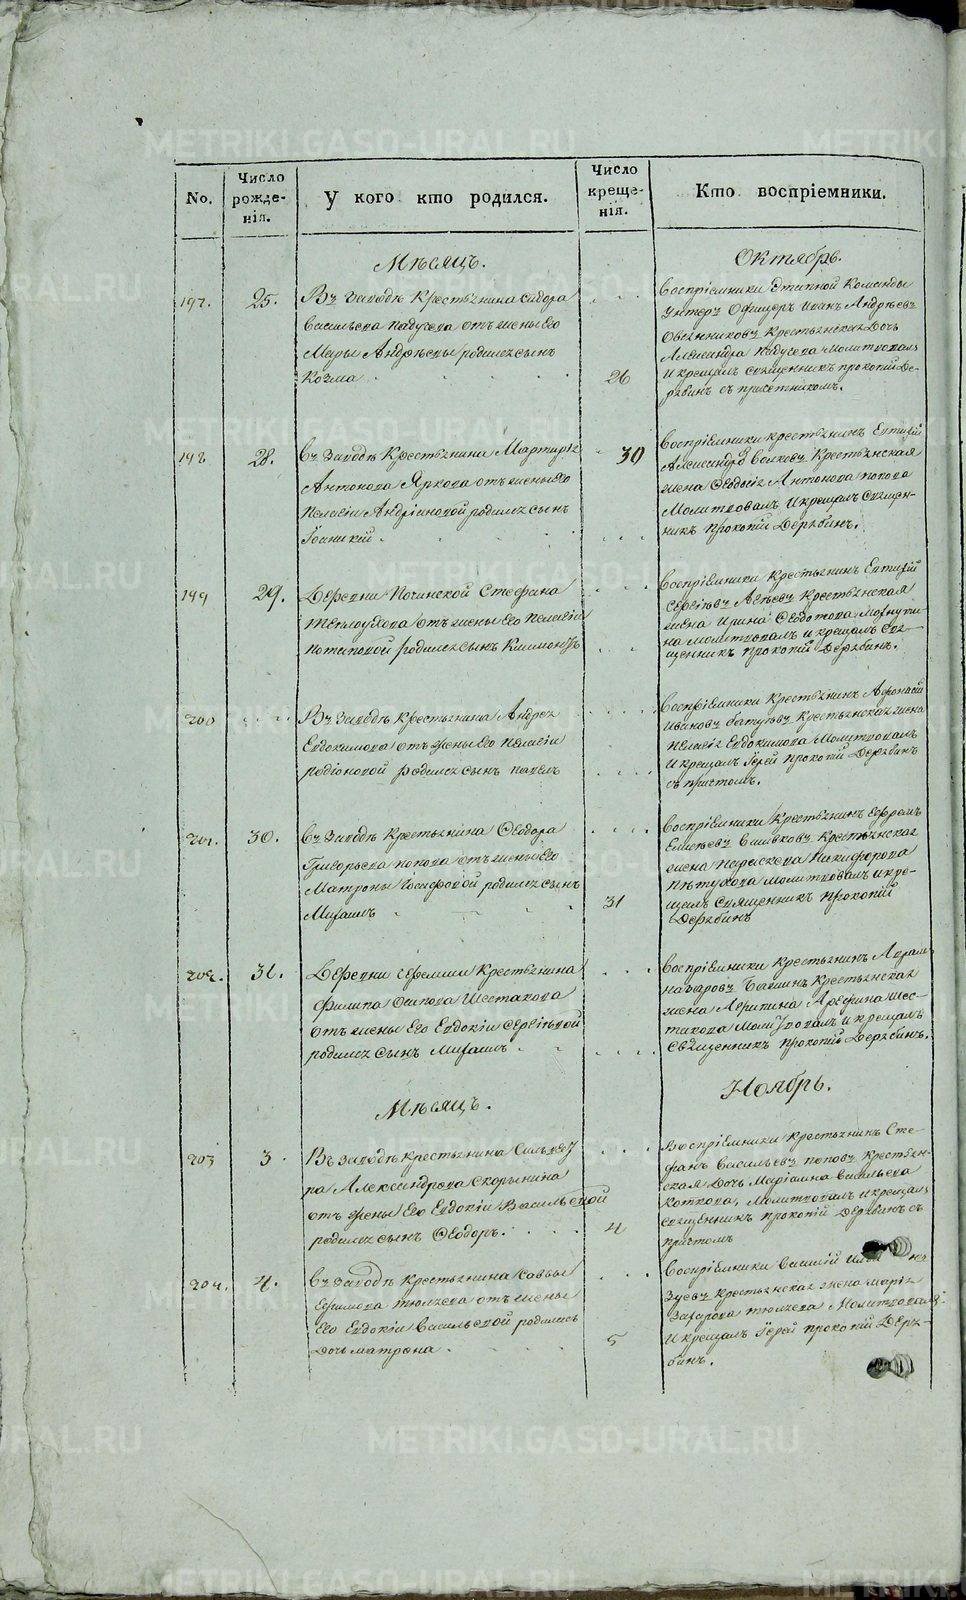 No.
Число рожде-нія.
У кого кто родился.
Число креще-нія.
Кто воспріемники.
Мѣсяцъ.
Октябрь.
197.
25.
Въ Заводѣ Крестьянина Сидора
Васильева Падусева отъ жены Его
Марьи Андрѣевы родился сынъ
Козма
26
Воспріемники Этапной Команды
Унтеръ Офицеръ Иванъ Андрѣевъ
Овчинниковъ Крестьянская Дочь
Александра Падусева Молитвовалъ
И крещалъ священникъ прокопій Де-
рябинъ съ причетникомъ.
198
28.
Въ Заводѣ Крестьянина
Антонова Яркова отъ жены Его
Пелагіи Андріановой родился сынъ
Іоанникій
30
Воспріемники крестьянинъ Евтихій
Волковъ Крестьянская
жена Ѳеодосья Антонова попова
Молитвовалъ И крещалъ Священ-
никъ прокопій Дерябинъ.
199
29.
Деревни Починской Стефана
Теплоухова отъ жены Его Пелагіи
потаповой родился сынъ
Воспріемники Крестьянинъ Евтихій
Сергѣевъ Крестьянская
жена Ирина Ѳеодотова
на молитвовалъ и крещалъ свя-
щенникъ прокопій Дерябинъ.
200
Въ Заводѣ Крестьянина Андрея
Евдокимова отъ жены Его Пелагіи
родіоновой родился сынъ павелъ
Воспріемники Крестьянинъ Афонасій
Ивановъ Крестьянская жена
Пелагія Евдокимова Молитвовалъ
И крещалъ Іерей прокопій Дерябинъ
съ причтомъ.
201.
30.
Въ Заводѣ Крестьянина Ѳеодора
Григорьева попова отъ жены Его
Матроны Іосифовой родился сынъ
Михаилъ
31
Воспріемники Крестьянинъ Ефремъ
Крестьянская
жена Параскева Никифорова
Пѣтухова молитвовалъ и кре-
щалъ священникъ прокопій
Дерябинъ
202.
31.
Деревни Крестьянина
Филипа Осипова Шестакова
отъ жены Его Евдокіи Сергѣевой
родился сынъ Михаилъ
Воспріемники крестьянинъ Авраамъ
Назаровъ Крестьянская
жена Агрипина Арефина Шес-
такова Молитвовалъ и крещалъ
Священникъ прокопій Дерябинъ.
Мѣсяцъ.
Ноябрь.
203
3.
Въ заводѣ крестьянина
Александрова Скорынина
отъ жены Его Евдокіи Васильевой
родился сынъ Ѳеодоръ.
4
Воспріемники крестьянинъ Сте-
фанъ Васильевъ поповъ Крестьян-
ская Дочь Маріамна Васильева
Коткова, Молитвовалъ и крещалъ
священникъ прокопій Дерябинъ съ
причтомъ
204.
4.
Въ Заводѣ Крестьянина Саввы
Ефимова тюляева отъ жены
Его Евдокіи Васильевой родилась
Дочь матрона
5
Воспріемники Василій
Зуевъ крестьянская жена Марія
Захарова тюляева Молитвовалъ
И крещалъ Іерей прокопій Деря-
бинъ.